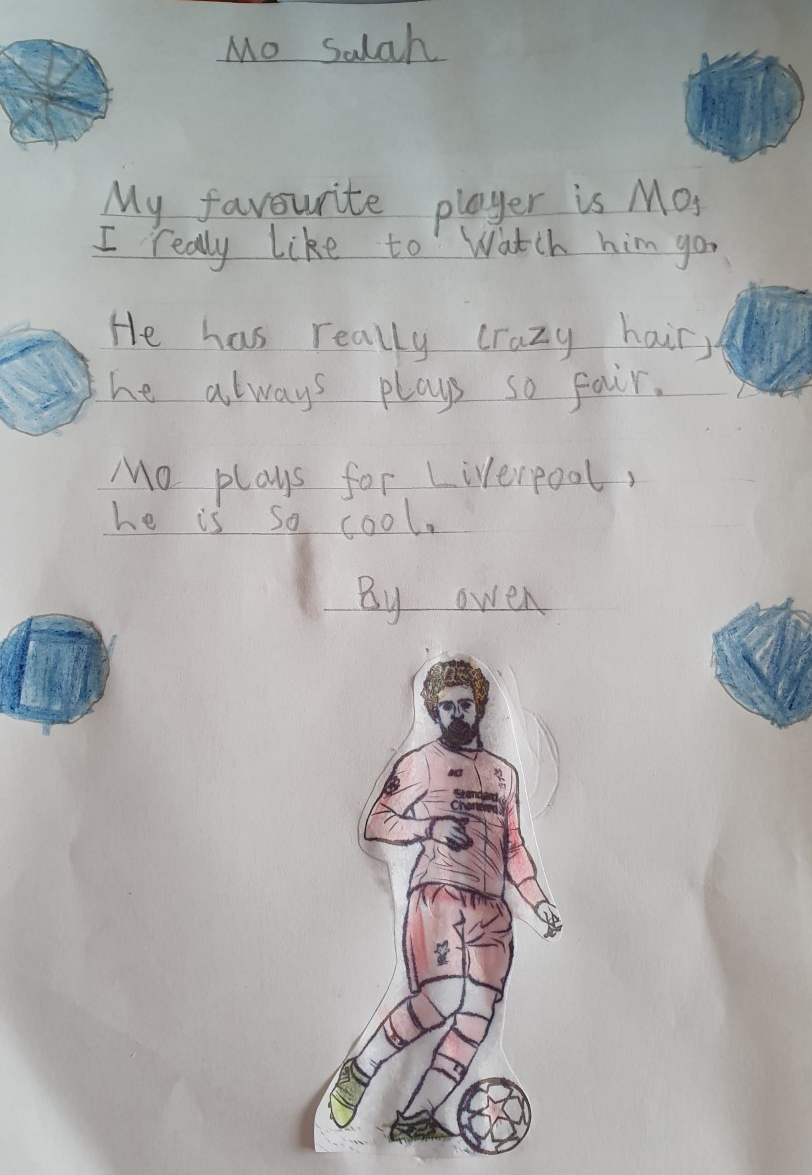 Mo Salah
My favourite player is Mo,
I really like to watch him go.
He has really crazy hair,
he always plays so fair.
Mo plays for Liverpool,
he is so cool.
By owen
Standard
Chartered